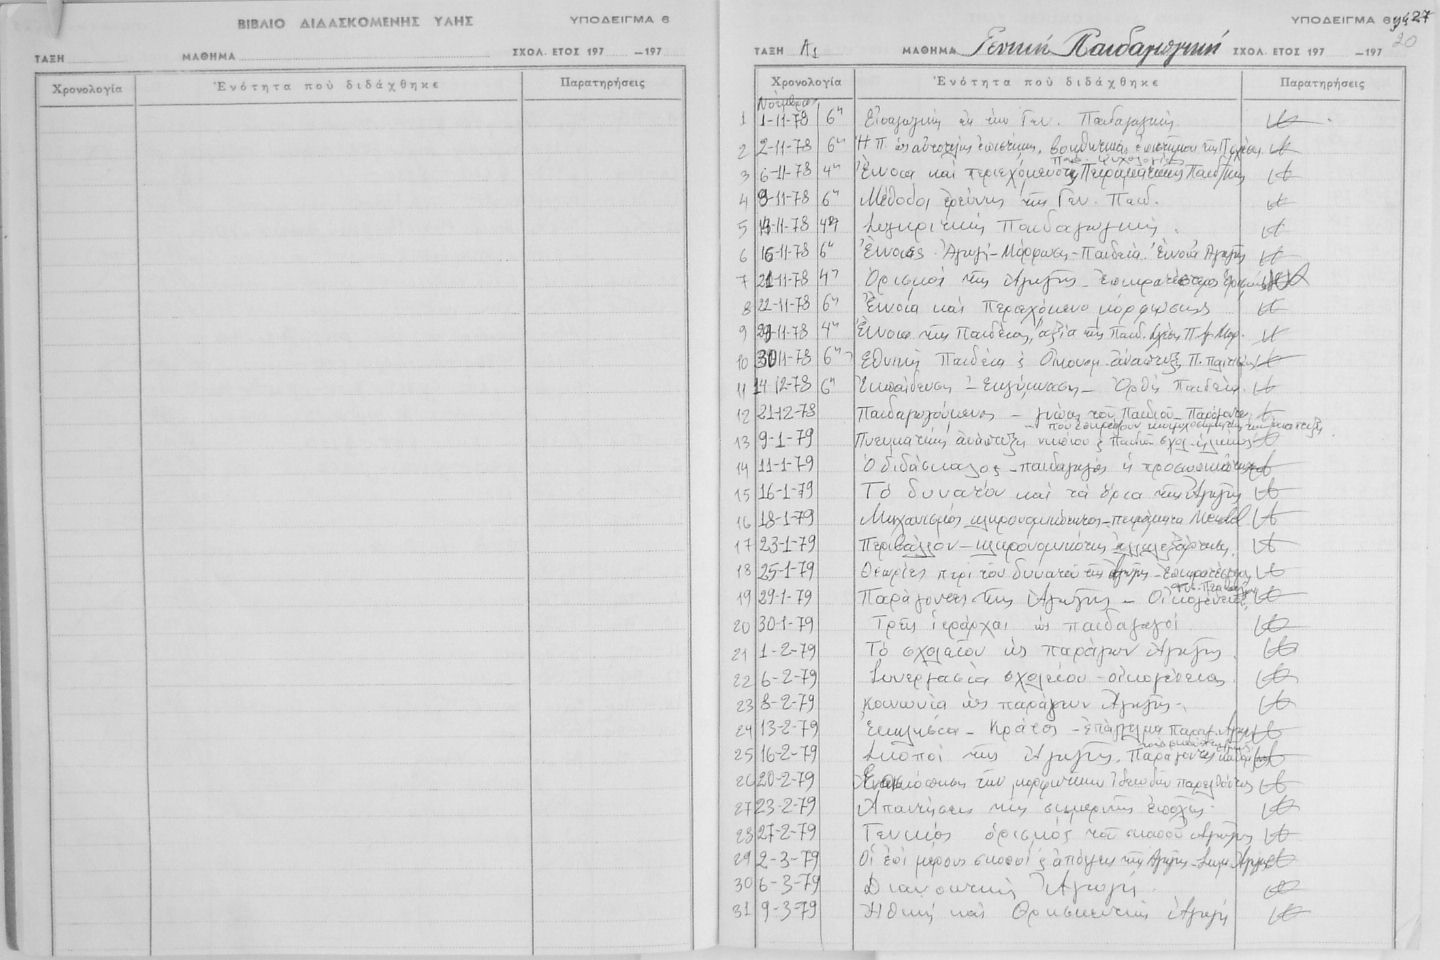 ΒΙΒΛΙΟ ΔΙΔΑΣΚΟΜΕΝΗΣ ΥΛΗΣ ΥΠΟΔΕΙΓΜΑ 6
ΤΑΞΗ ΜΑΘΗΜΑ ΣΧΟΛ. ΕΤΟΣ 197 —197
Χρονολογία Ἑνότητα ποὺ διδάχθηκε Παρατηρήσεις
ΥΠΟΔΕΙΓΜΑ 6 27
20
ΤΑΞΗ Α1 ΜΑΘΗΜΑ Γενική Παιδαγωγική ΣΧΟΛ. ΕΤΟΣ 197 —197
Χρονολογία Ἑνότητα ποὺ διδάχθηκε Παρατηρήσεις
Νοέμβριος
1 1-11-78 6η Εἰσαγωγὴ εἰς τὴν Γεν. Παιδαγωγικὴ
2 2-11-78 6η Ἡ Π. ὡς αὐτοτελὴς ἐπιστήμη, βοηθητικαὶ
Παιδ. ψυχολογίας
3 6-11-78 4η Ἔννοια καὶ περιεχόμενο τῆς Πειραματικῆς Παιδ/κῆς
4 9-11-78 6η Μέθοδοι ἐρεύνης τῆς Γεν. Παιδ.
5 13-11-78 4η Συγκριτικὴ Παιδαγωγικὴ.
6 16-11-78 6η Ἔννοιες Ἀγωγὴ-Μόρφωσις-Παιδεία. Ἔννοια Ἀγωγῆς
7 21-11-78 4η Ὁρισμοὶ τῆς Ἀγωγῆς -
8 22-11-78 6η Ἔννοια καὶ Περιεχόμενο μορφώσεως
9 29-11-78 4η Ἔννοια τῆς Παιδείας, ἀξία τῆς Παιδ. Σχέσις Π.-Ἀ.-Μορ.
10 30-11-78 6η Ἐθνικὴ Παιδεία & Οἰκονομ. ἀνάπτυξη
11 14-12-78 6η Ἐκπαίδευσις - - Ὀρθὴ παιδεία.
12 21-12-78 Παιδαγωγούμενος - γνῶσις τοῦ Παιδιοῦ - Παράγοντες
13 9-1-79 Πνευματικὴ ἀνάπτυξη νηπίου &
14 11-1-79 Ὁ διδάσκαλος - παιδαγωγὸς ἡ προσωπικότης
15 16-1-79 Τὸ δυνατὸν καὶ τὰ ὅρια τῆς Ἀγωγῆς
16 18-1-79 Μηχανισμὸς κληρονομικότητος - πειράματα Mendel
17 23-1-79 Περιβάλλον - κληρονομικότης ἀλληλεξάρτησις.
18 25-1-79 Θεωρίες περὶ τοῦ δυνατοῦ τῆς Ἀγωγῆς -
19 29-1-79 Παράγοντες τῆς Ἀγωγῆς - Οἰκογένεια
20 30-1-79 Τρεῖς ἱεράρχαι ὡς παιδαγωγοὶ
21 1-2-79 Τὸ σχολεῖον ὡς παράγων Ἀγωγῆς.
22 6-2-79 Συνεργασία σχολείου - οἰκογένειας
23 8-2-79 κοινωνία ὡς παράγων Ἀγωγῆς.
24 13-2-79 Ἐκκλησία - Κράτος - ἐπάγγελμα παράγ. Ἀγωγῆς
25 16-2-79 Σκοποὶ τῆς Ἀγωγῆς. Παράγοντες
26 20-2-79 Ἐπισκόπησις τῶν μορφωτικῶν ἰδεωδῶν παρελθόντος
27 23-2-79 Ἀπαιτήσεις τῆς σημερινῆς ἐποχῆς.
28 27-2-79 Γενικὸς ὁρισμὸς τοῦ σκοποῦ Ἀγωγῆς
29 2-3-79 Οἱ ἐπὶ μέρους σκοποὶ & ἀπόψεις τῆς Ἀγωγῆς - Σωμ. Ἀγωγὴ
30 6-3-79 Διανοητικὴ Ἀγωγή.
31 9-3-79 Ἠθικὴ καὶ Θρησκευτικὴ Ἀγωγὴ